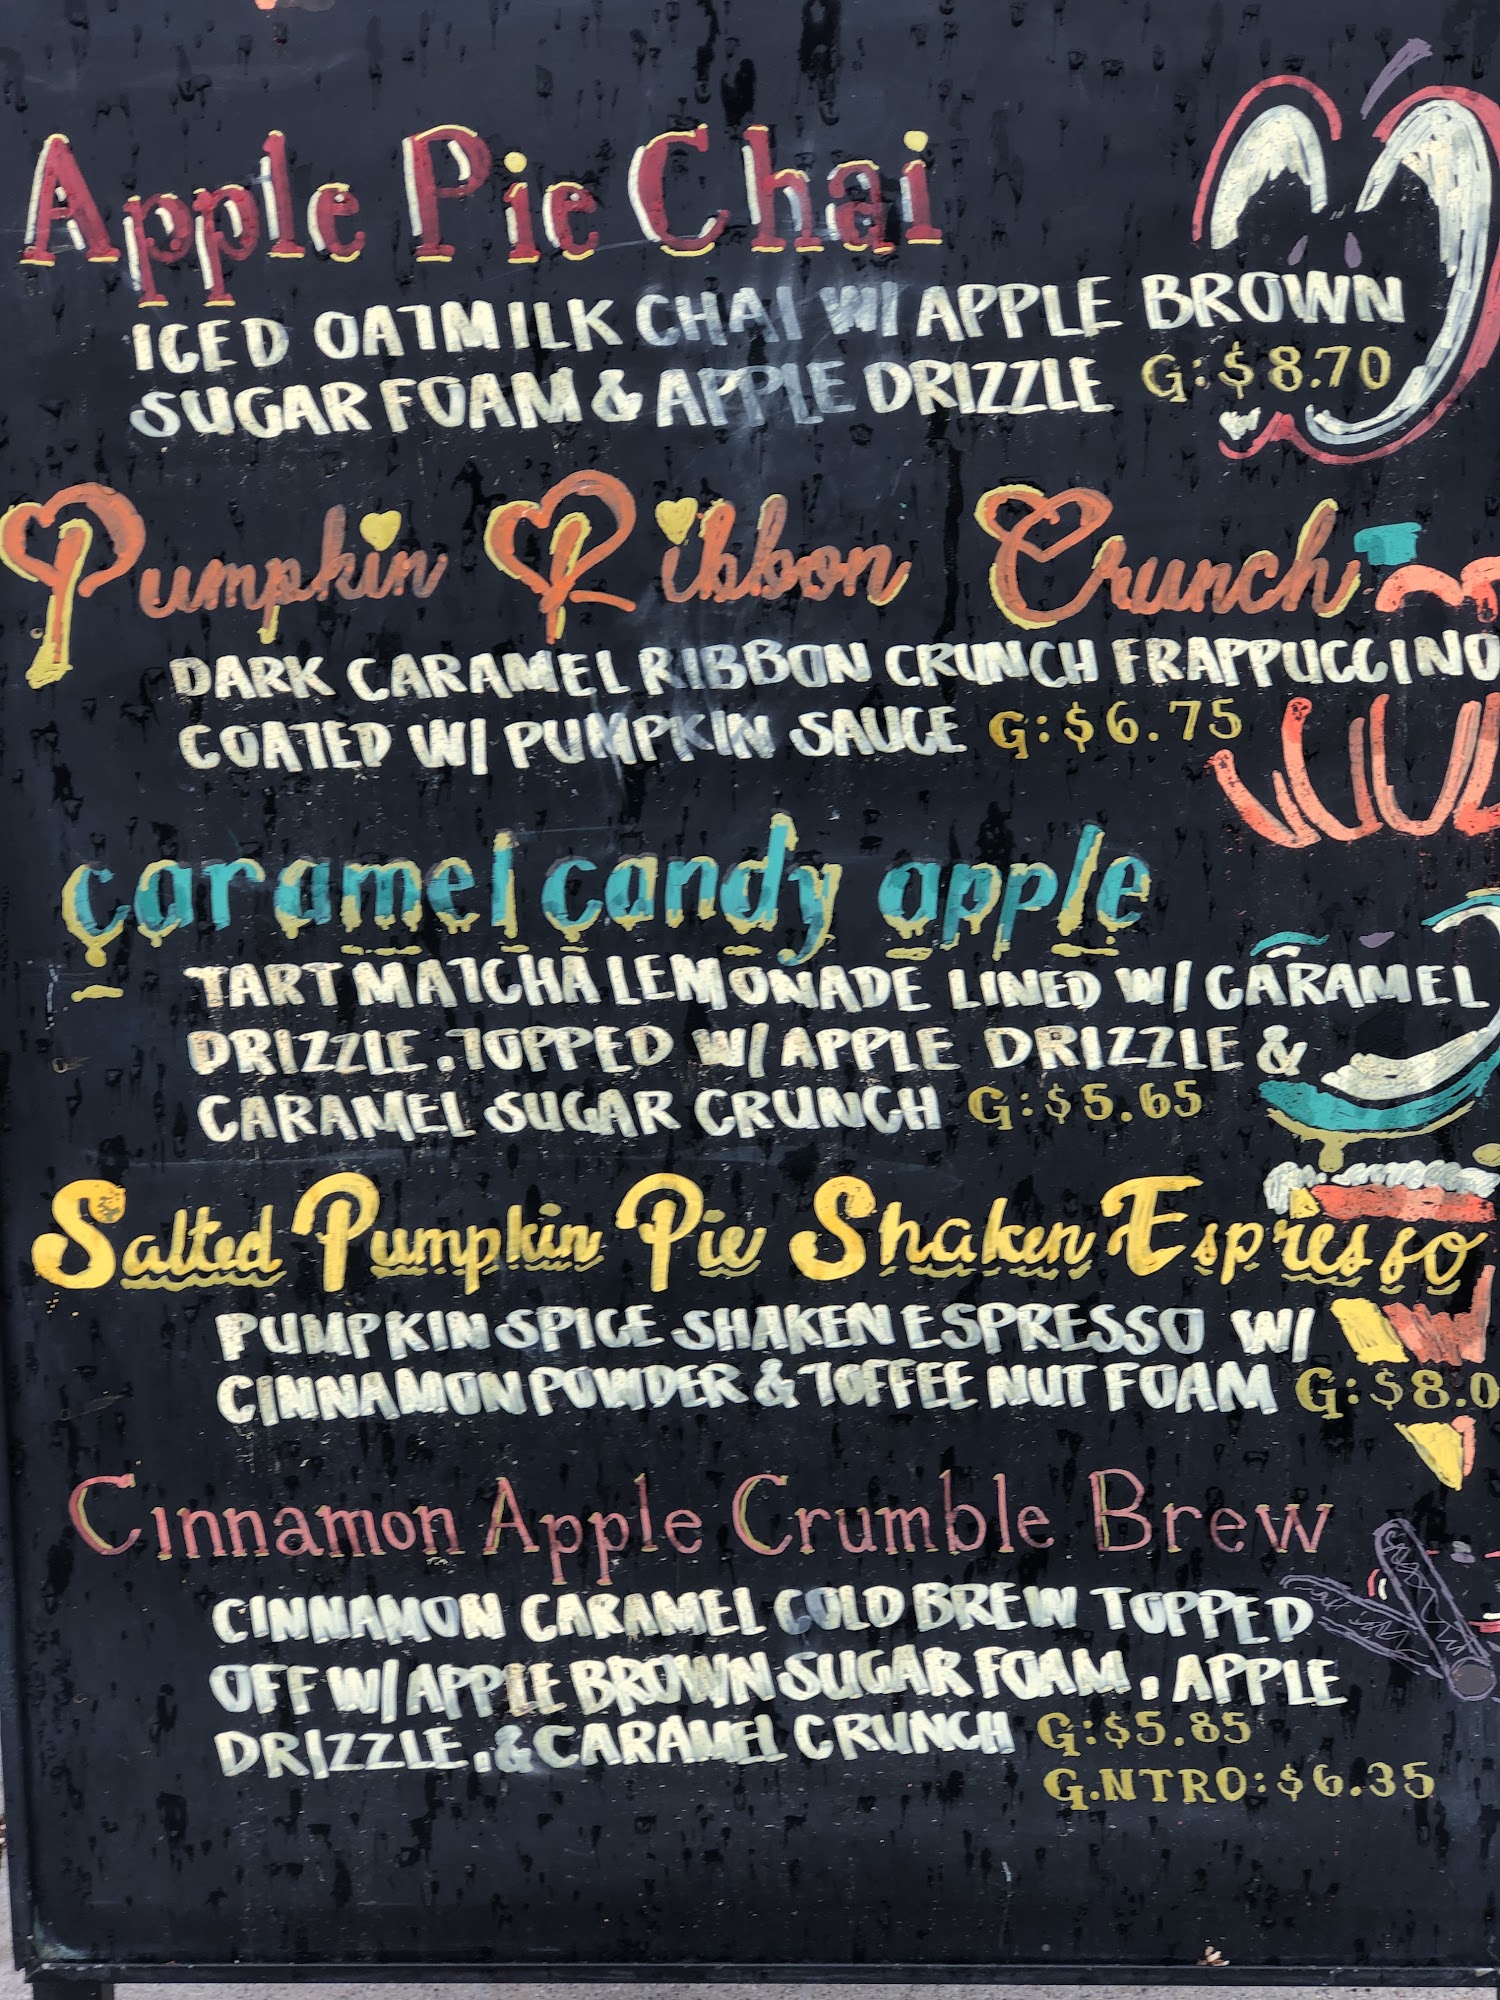 Apple Pie Chai
ICED OATMILK CHAI W/ APPLE BROWN
SUGAR FOAM & APPLE DRIZZLE G: $8.70
Pumpkin Ribbon Crunch
DARK CARAMEL RIBBON CRUNCH FRAPPUCCINO
COATED W/ PUMPKIN SAUCE G: $6.75
caramel candy apple
TART MATCHA LEMONADE LINED W/ CARAMEL
DRIZZLE. TOPPED W/ APPLE DRIZZLE &
CARAMEL SUGAR CRUNCH G: $5.65
Salted Pumpkin Pie Shaken Espresso
PUMPKIN SPICE SHAKEN ESPRESSO W/
CINNAMON POWDER & TOFFEE NUT FOAM G: $8.0
Cinnamon Apple Crumble Brew
CINNAMON CARAMEL COLD BREW TOPPED
OFF W/ APPLE BROWN SUGAR FOAM, APPLE
DRIZZLE, & CARAMEL CRUNCH G: $5.85
G.NTRO: $6.35